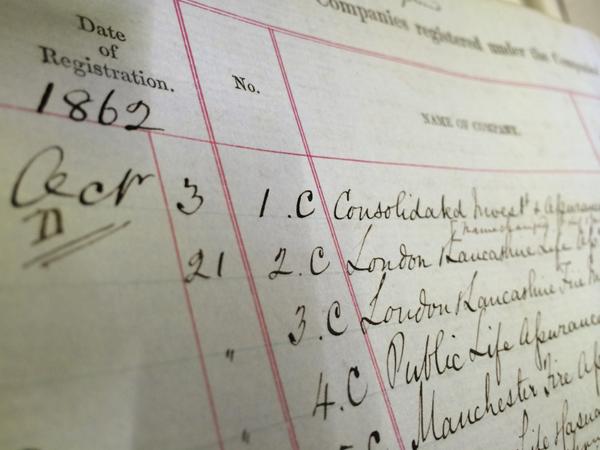 Companies registered under the Companies
Date
of
Registration.
No.
NAME OF COMPANY.
1862
Octr 3 1.C Consolidated Investt & Assurance
D
21 2.C London & Lancashire Life
" 3.C London & Lancashire Fire
" 4.C Public Life Assurance
Manchester Fire
Life